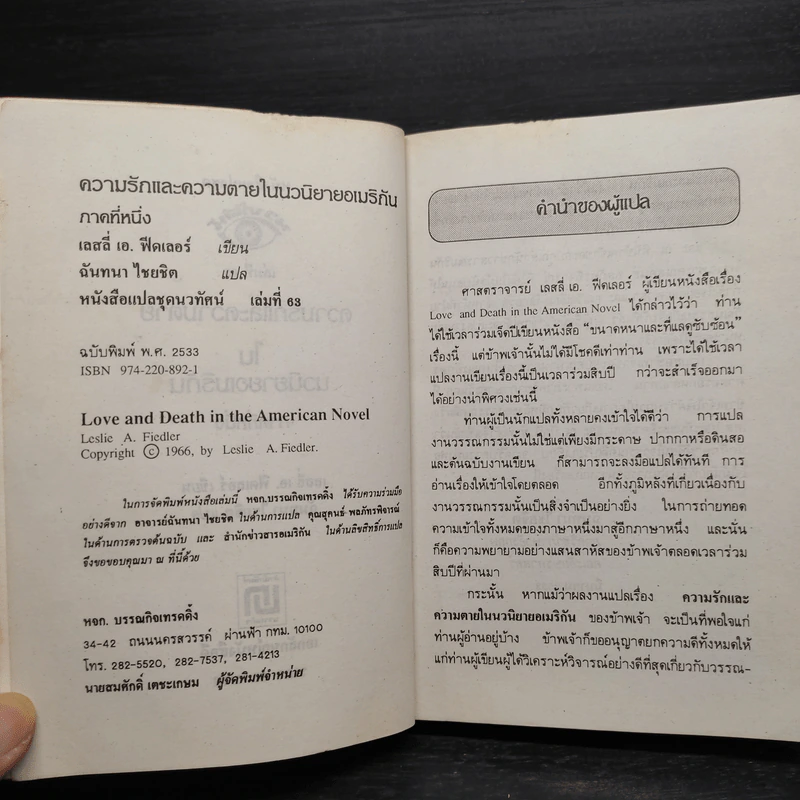 ความรักและความตายในนวนิยายอเมริกัน
ภาคที่หนึ่ง
เลสลี่ เอ. ฟีดเลอร์ เขียน
ฉันทนา ไชยชิต แปล
หนังสือแปลชุดนวทัศน์ เล่มที่ 63
ฉบับพิมพ์ พ.ศ. 2533
ISBN 974-220-892-1
Love and Death in the American Novel
Leslie A. Fiedler
Copyright © 1966, by Leslie A. Fiedler.
ในการจัดพิมพ์หนังสือเล่มนี้ หจก.บรรณกิจเทรดดิ้ง ได้รับความร่วมมือ
อย่างดีจาก อาจารย์ฉันทนา ไชยชิต ในด้านการแปล คุณสุคนธ์ พลภัทรพิจารณ์
ในด้านการตรวจต้นฉบับ และ สำนักข่าวสารอเมริกัน ในด้านลิขสิทธิ์การแปล
จึงขอขอบคุณมา ณ ที่นี้ด้วย
หจก. บรรณกิจเทรดดิ้ง
34-42 ถนนนครสวรรค์ ผ่านฟ้า กทม. 10100
โทร. 282-5520, 282-7537, 281-4213
นายสมศักดิ์ เตชะเกษม ผู้จัดพิมพ์จำหน่าย
คำนำของผู้แปล
ศาสตราจารย์ เลสลี่ เอ. ฟีดเลอร์ ผู้เขียนหนังสือเรื่อง
Love and Death in the American Novel ได้กล่าวไว้ว่า ท่าน
ได้ใช้เวลาร่วมเจ็ดปีเขียนหนังสือ “ขนาดหนาและที่แลดูซับซ้อน”
เรื่องนี้ แต่ข้าพเจ้านั้นไม่ได้มีโชคดีเท่าท่าน เพราะได้ใช้เวลา
แปลงานเขียนเรื่องนี้เป็นเวลาร่วมสิบปี กว่าจะสำเร็จออกมา
ได้อย่างน่าพิศวงเช่นนี้
ท่านผู้เป็นนักแปลทั้งหลายคงเข้าใจได้ดีว่า การแปล
งานวรรณกรรมนั้นไม่ใช่แต่เพียงมีกระดาษ ปากกาหรือดินสอ
และต้นฉบับงานเขียน ก็สามารถจะลงมือแปลได้ทันที การ
อ่านเรื่องให้เข้าใจโดยตลอด อีกทั้งภูมิหลังที่เกี่ยวเนื่องกับ
งานวรรณกรรมนั้นเป็นสิ่งจำเป็นอย่างยิ่ง ในการถ่ายทอด
ความเข้าใจทั้งหมดของภาษาหนึ่งมาสู่อีกภาษาหนึ่ง และนั่น
ก็คือความพยายามอย่างแสนสาหัสของข้าพเจ้าตลอดเวลาร่วม
สิบปีที่ผ่านมา
กระนั้น หากแม้ว่าผลงานแปลเรื่อง ความรักและ
ความตายในนวนิยายอเมริกัน ของข้าพเจ้า จะเป็นที่พอใจแก่
ท่านผู้อ่านอยู่บ้าง ข้าพเจ้าก็ขออนุญาตยกความดีทั้งหมดให้
แก่ท่านผู้เขียนผู้ได้วิเคราะห์วิจารณ์อย่างดีที่สุดเกี่ยวกับวรรณ-